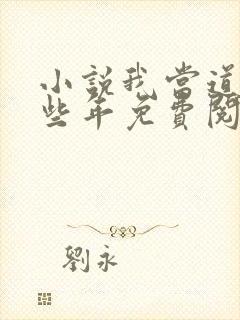 小說我當道
些年免費閱
劉永